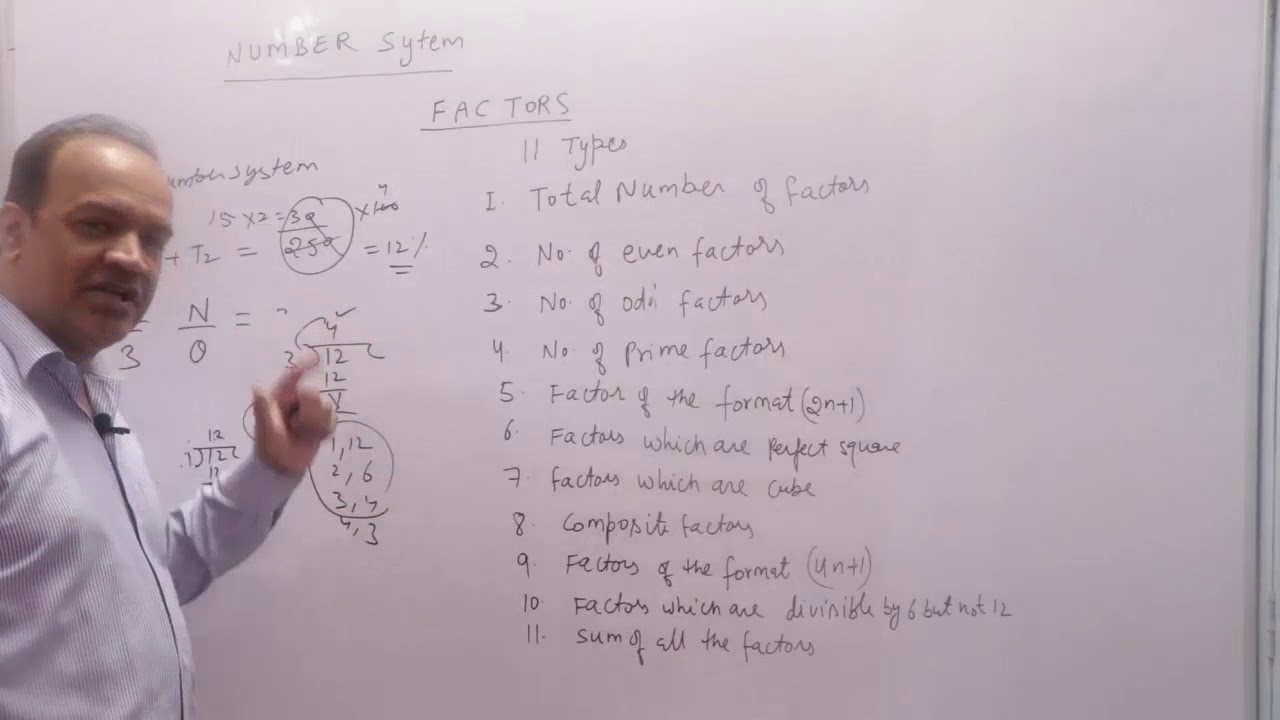 NUMBER Sytem
FACTORS
11 Types
1. Total Number of factors
2. No. of even factors
3. No. of odd factors
4. No. of Prime factors
5. Factor of the format (2n+1)
6. Factors which are perfect square
7. factors which are cube
8. Composite factors
9. Factors of the format (4n+1)
10. Factors which are divinible by 6 but not 12
11. Sum of all the factors
system
15 × 2 = 30
+ T2 = 250 × 100 = 12%
3
N
0
=
4
3 12
12
1, 12
2, 6
3, 4
4, 3
12
1 12
12